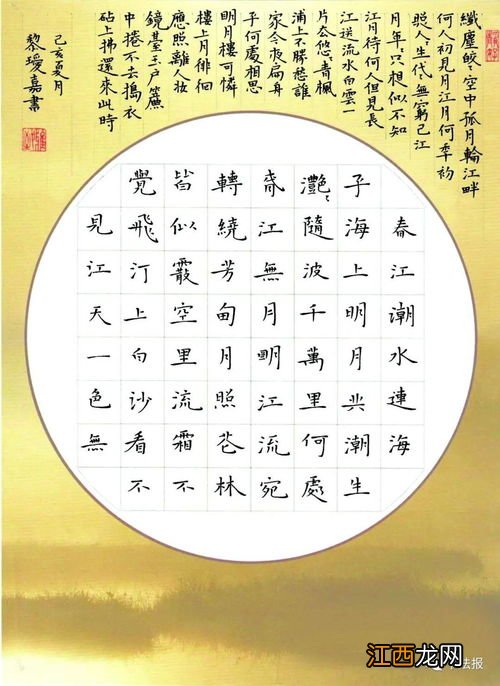 春江潮水連海
平海上明月共潮生
灧〻隨波千萬里何處
春江無月明江流宛
轉繞芳甸月照花林
皆似霰空里流霜不
覺飛汀上白沙看不
見江天一色無
纖塵皎〻空中孤月輪江畔
何人初見月江月何年初
照人〻生代〻無窮已江
月年〻只相似不知
江月待何人但見長
江送流水白雲一
片去悠〻青楓
浦上不勝愁誰
家今夜扁舟
子何處相思
明月樓可憐
樓上月徘徊
應照離人妝
鏡臺玉戶簾
中捲不去搗衣
砧上拂還來此時
己亥夏月
黎瑷嘉書
法报
江西龙网